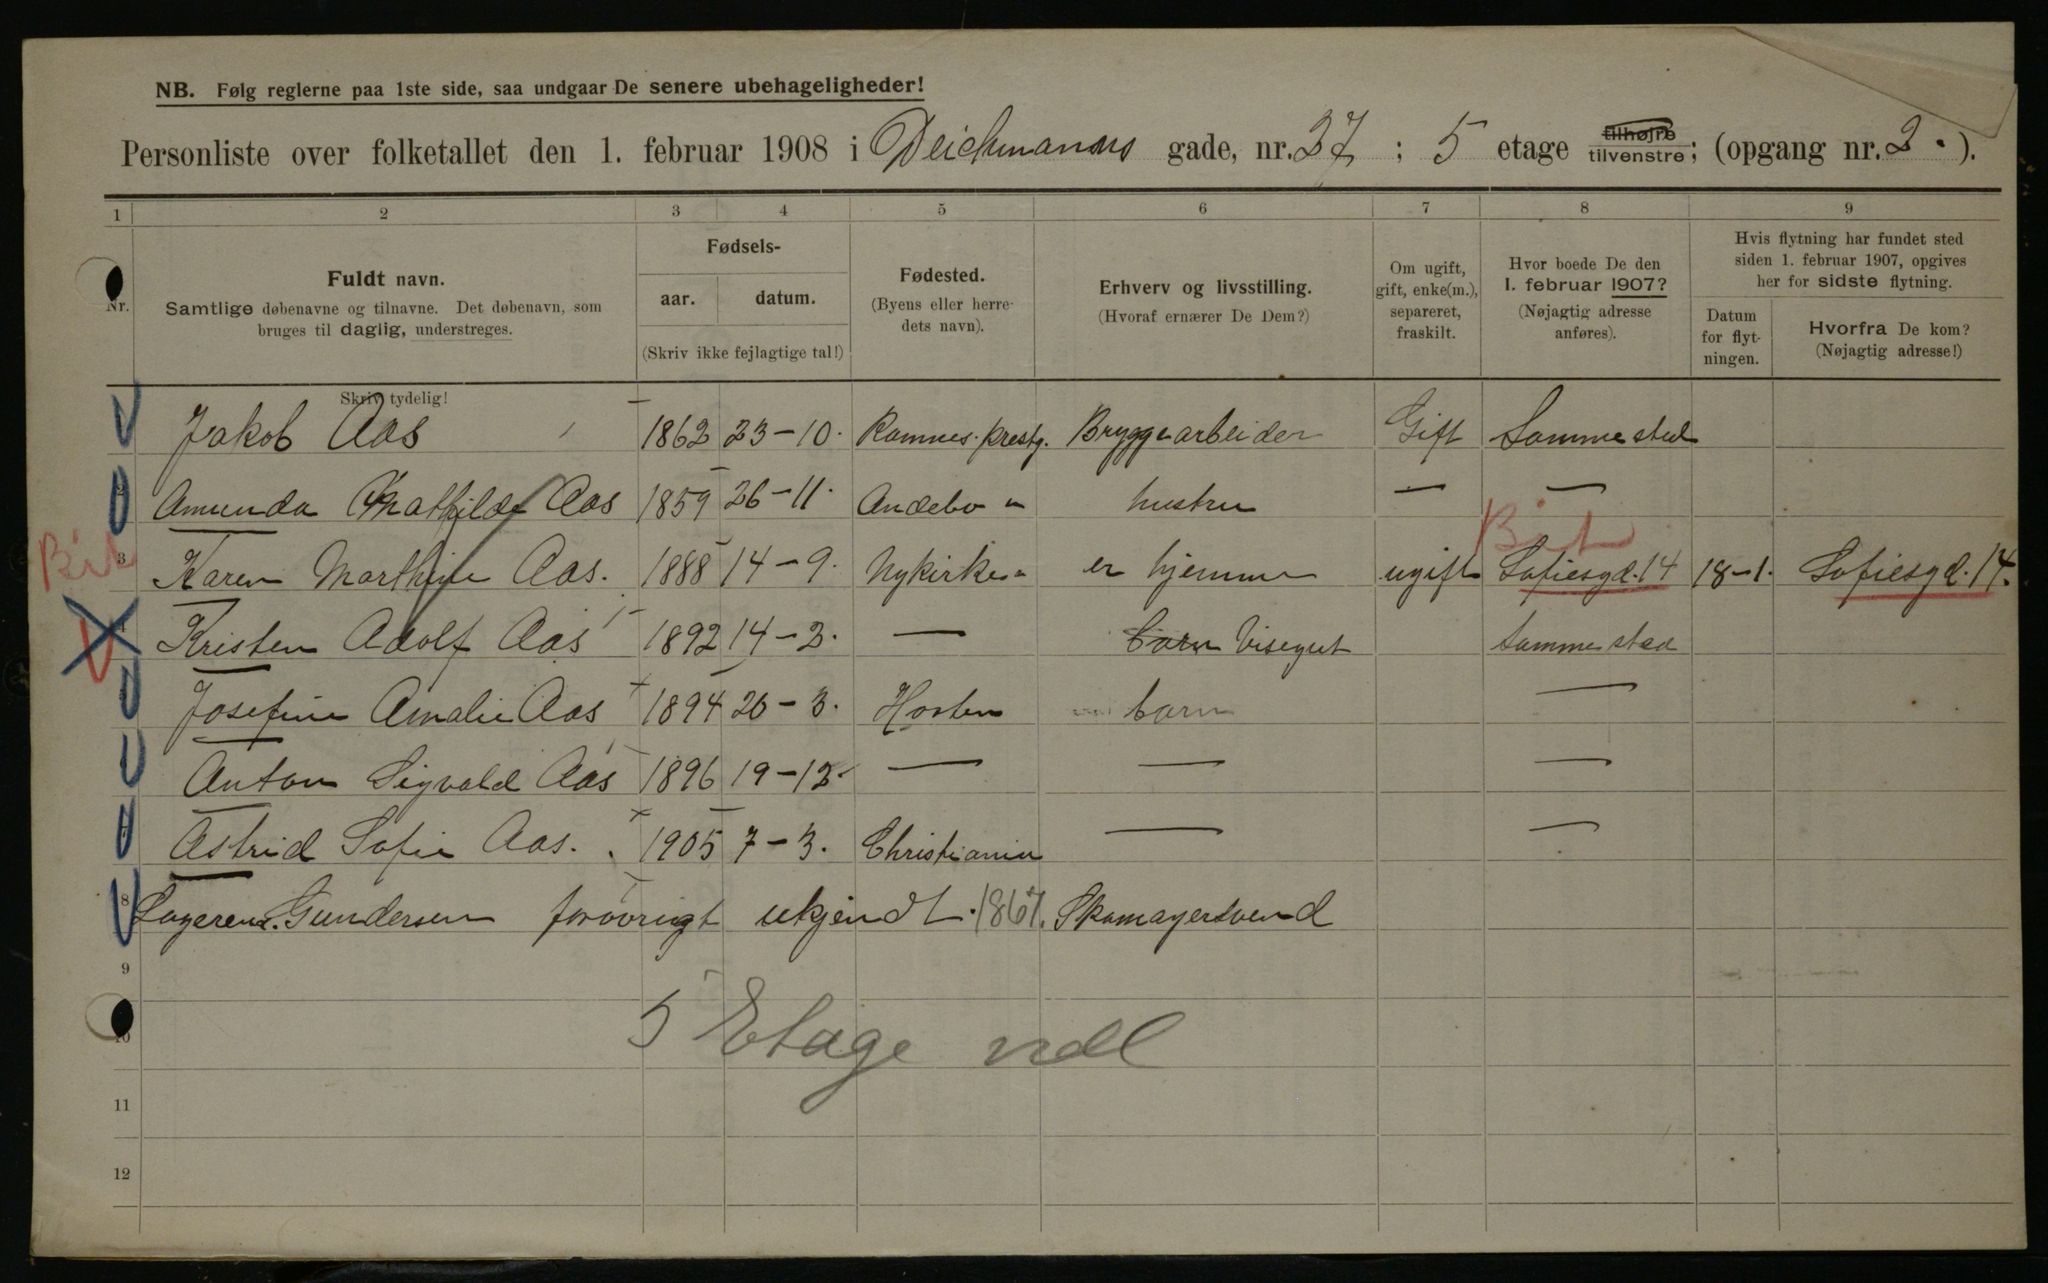 NB. Følg reglerne paa 1ste side, saa undgaar De senere ubehageligheder!
Personliste over folketallet den 1. februar 1908 i Deichmanns gade, nr. 27 ; 5 etage tilhøjre tilvenstre; (opgang nr. 2. ).
1 2 3 4 5 6 7 8 9
Nr. Fuldt navn. Fødsels- Fødested. Erhverv og livsstilling. Om ugift, gift, enke(m.), separeret, fraskilt. Hvor boede De den 1. februar 1907? Hvis flytning har fundet sted siden 1. februar 1907, opgives her for sidste flytning.
Samtlige døbenavne og tilnavne. Det døbenavn, som bruges til daglig, understreges. aar. datum. (Byens eller herredets navn). (Hvoraf ernærer De Dem?) (Nøjagtig adresse anføres). Datum for flytningen. Hvorfra De kom? (Nøjagtig adresse!)
(Skriv ikke fejlagtige tal!)
Skriv tydelig!
Jakob Aas 1862 23-10. Ramnes. prestg. Bryggearbeider Gift Samme sted
2 Amunda Mathilde Aas 1859 26-11. Andebo " hustru — —
Bit Bit
3 Karen Marthine Aas. 1888 14-9. Nykirke " er hjemme ugift Sofiesgd. 14 18-1. Sofiesgd. 14.
4 Kristen Adolf Aas 1892 14-2. — barn Visegut Samme sted
Josefine Amalie Aas 1894 20-3. Horten barn —
Anton Sigvald Aas 1896 19-12. — — —
Astrid Sofie Aas. 1905 7-3. Christiania — —
8 Logerend. Gundersen forøvrigt ukjendt. 1867. Skomagersvend
9
5 Etage
10
11
12